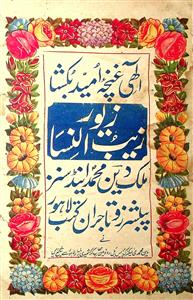 الٰہی غنچۂ امید بکشا
زیور
زیب النسا
ملک دین محمد اینڈ سنز
پبلشرز و تاجران کتب لاہور
نے